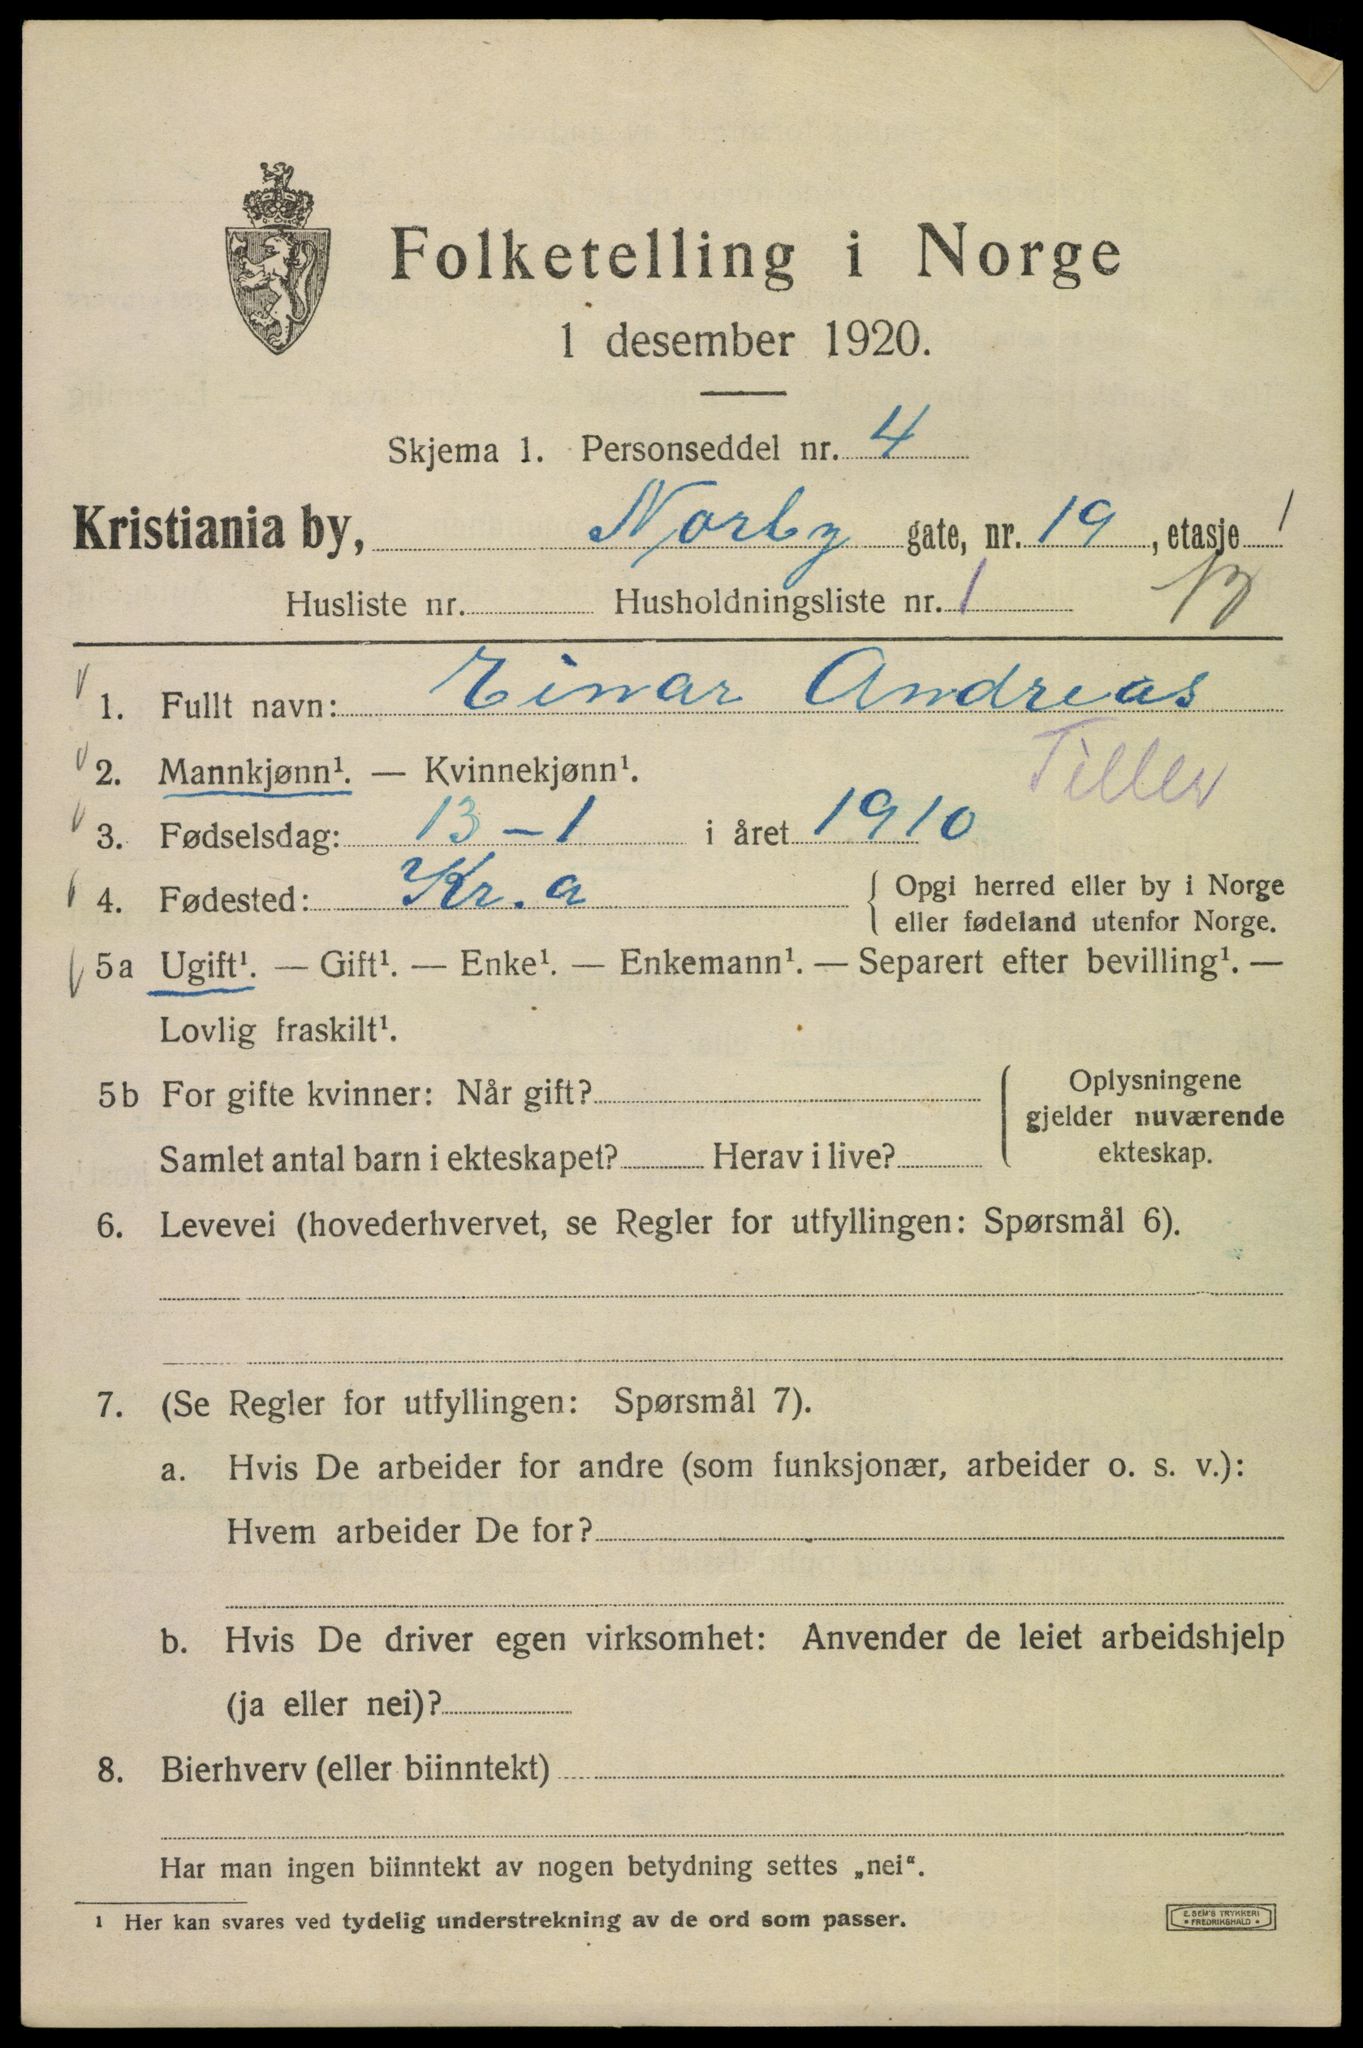 Folketelling i Norge
1 desember 1920.
Skjema 1. Personseddel nr. 4
Kristiania by, Norby gate, nr. 19, etasje 1
Husliste nr. Husholdningsliste nr. 1
1. Fullt navn: Einar Andreas
Tiller
2. Mannkjønn¹. — Kvinnekjønn¹.
3. Fødselsdag: 13-1 i året 1910
4. Fødested: Kr.a { Opgi herred eller by i Norge
eller fødeland utenfor Norge.
5a Ugift¹. — Gift¹. — Enke¹. — Enkemann¹. — Separert efter bevilling¹. —
Lovlig fraskilt¹.
5b For gifte kvinner: Når gift?
Samlet antal barn i ekteskapet? Herav i live?
Oplysningene
gjelder nuværende
ekteskap.
6. Levevei (hovederhvervet, se Regler for utfyllingen: Spørsmål 6).
7. (Se Regler for utfyllingen: Spørsmål 7).
a. Hvis De arbeider for andre (som funksjonær, arbeider o. s. v.):
Hvem arbeider De for?
b. Hvis De driver egen virksomhet: Anvender de leiet arbeidshjelp
(ja eller nei)?
8. Bierhverv (eller biinntekt)
Har man ingen biinntekt av nogen betydning settes „nei“.
¹ Her kan svares ved tydelig understrekning av de ord som passer.
E. SEM'S TRYKKERI
• FREDRIKSHALD •